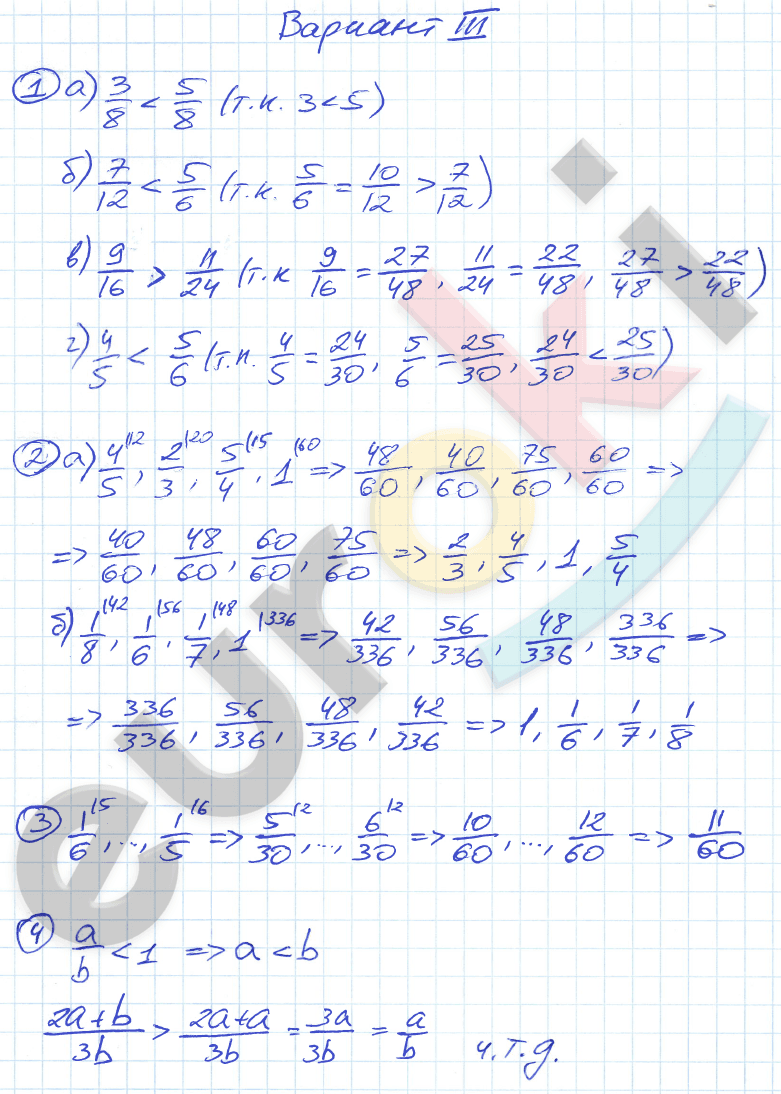 Вариант III
1 а) 3/8 < 5/8 (т.к. 3 < 5)
б) 7/12 < 5/6 (т.к. 5/6 = 10/12 > 7/12)
в) 9/16 > 11/24 (т.к 9/16 = 27/48, 11/24 = 22/48, 27/48 > 22/48)
г) 4/5 < 5/6 (т.к. 4/5 = 24/30, 5/6 = 25/30, 24/30 < 25/30)
2 а) 4/5 |12, 2/3 |20, 5/4 |15, 1 |60 => 48/60, 40/60, 75/60, 60/60 =>
=> 40/60, 48/60, 60/60, 75/60 => 2/3, 4/5, 1, 5/4
б) 1/8 |42, 1/6 |56, 1/7 |48, 1 |336 => 42/336, 56/336, 48/336, 336/336 =>
=> 336/336, 56/336, 48/336, 42/336 => 1, 1/6, 1/7, 1/8
3 1/6 |5, ..., 1/5 |6 => 5/30 |2, ..., 6/30 |2 => 10/60, ..., 12/60 => 11/60
4 a/b < 1 => a < b
2a+b/3b > 2a+a/3b = 3a/3b = a/b ч.т.д.
euroki